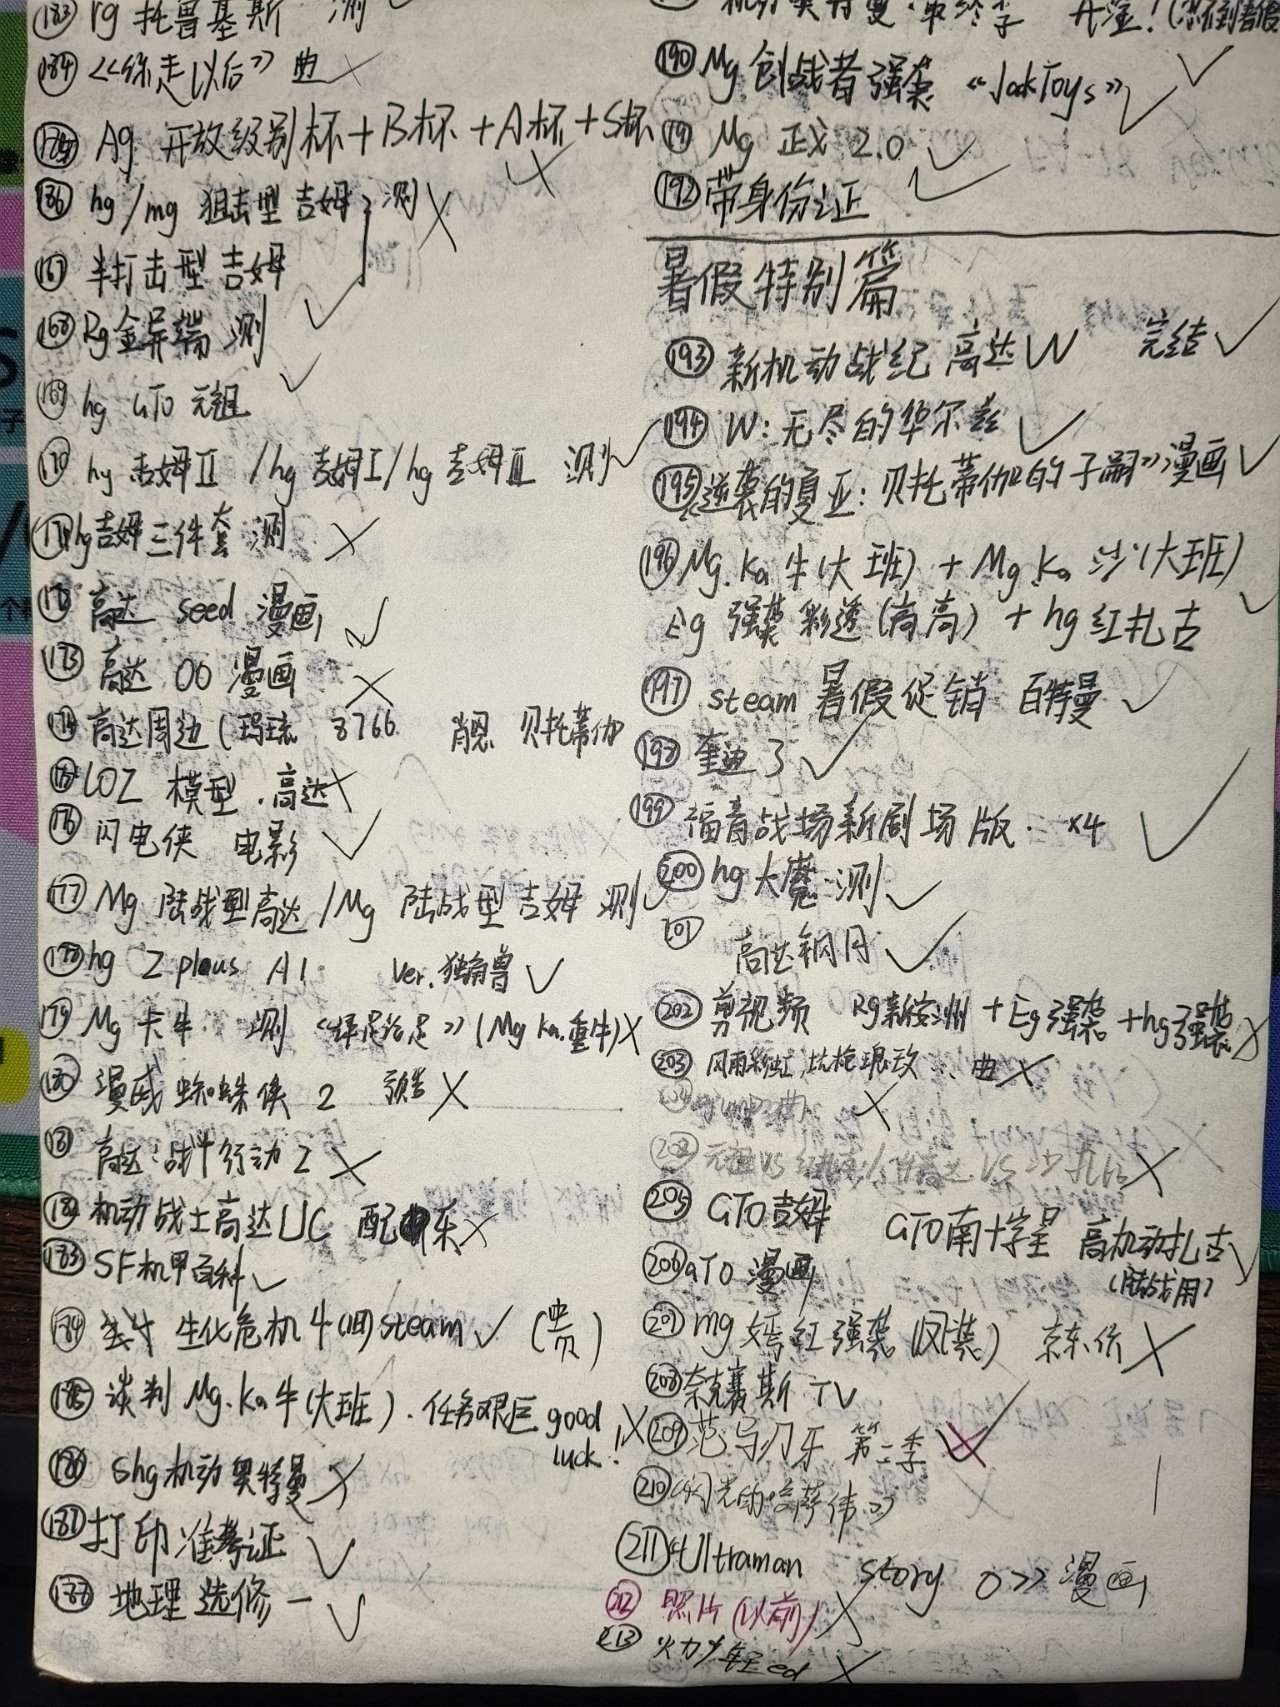 183 rg 托鲁基斯 测
184 《你走以后》 曲
Ag 开放级别杯+B杯+A杯+S杯
166 hg/mg 狙击型 吉姆 测
167 半打击型 吉姆
168 Rg金异端 测
169 hg GTO 元祖
170 hg 吉姆Ⅱ /hg 吉姆Ⅰ/hg 吉姆Ⅲ 测
171 hg吉姆三件套 测
172 高达 seed 漫画
173 高达 00 漫画
174 高达周边(玛琉 3766 肖恩 贝托蒂伽
175 LOZ 模型 高达
176 闪电侠 电影
177 Mg 陆战型高达/Mg 陆战型吉姆 测
178 hg Z plaus A1 Ver.独角兽
179 Mg 卡牛 测 (Mg Ka.重牛)
180 漫威 蜘蛛侠 2 预告
181 高达:战斗行动2
182 机动战士高达UC 配乐
183 SF机甲百科
184 生化危机4(旧)steam (贵)
185 谈判 Mg.Ka牛(大班).任务艰巨 good luck!
186 Shg机动奥特曼
187 打印准考证
188 地理选修一
机动奥特曼·最终季 开渲!
190 Mg 创战者强袭 《JackToys》
191 Mg 正义 2.0
192 带身份证
暑假特别篇
193 新机动战纪 高达W 完结
194 W:无尽的华尔兹
195 逆袭的夏亚:贝托蒂伽的子嗣》漫画
196 Mg.Ka 牛(大班)+Mg.Ka 沙(大班)
Eg 强袭 彩透(高高)+hg红扎古
197 steam 暑假促销 百特曼
198 奎迪3
199 福音战场新剧场版 ×4
200 hg 大魔 测
201 高达钢月
202 剪视频 Rg新安洲+Eg强袭+hg强袭
203 风雨彩虹 铿锵玫瑰 曲
元祖VS
205 GTO吉姆 GTO南十字星 高机动扎古
(陆战用)
206 GTO 漫画
207 mg 嫣红强袭(风装) 京东价
208 奈克赛斯 TV
209 范马刃牙 第二季
210 《闪光的哈萨维》
211 《Ultraman story 0》漫画
212 照片(以前)
213 火力少年王ed